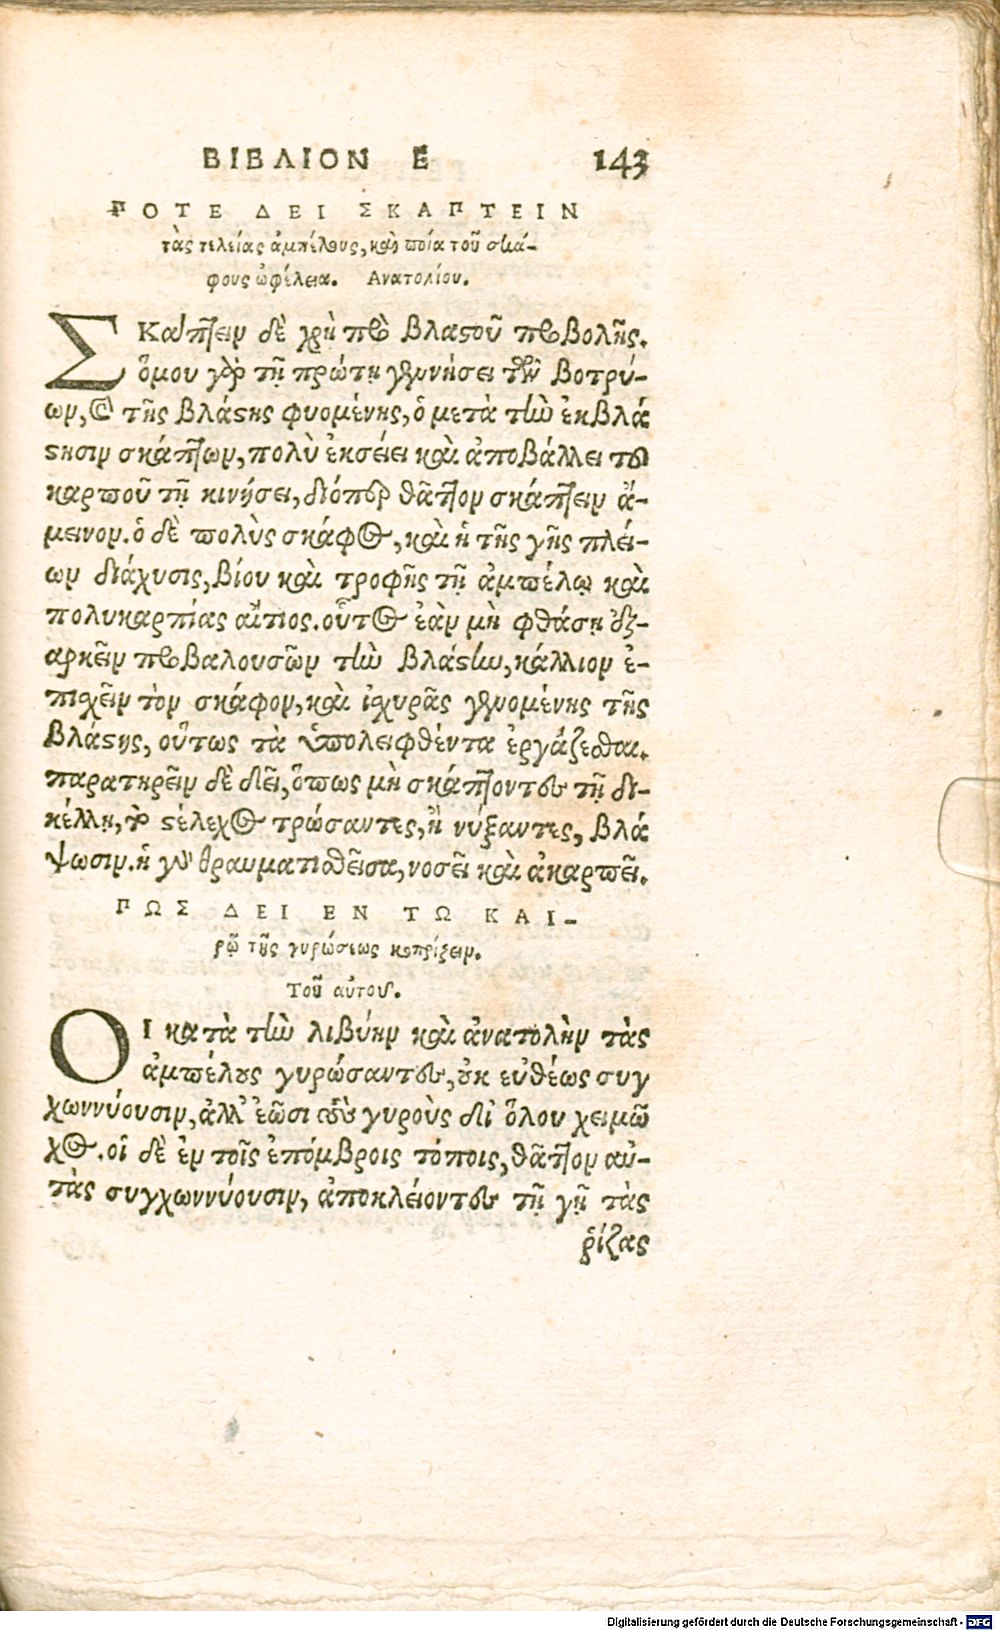 ΒΙΒΛΙΟΝ Ε 143
ΠΟΤΕ ΔΕΙ ΣΚΑΠΤΕΙΝ
τὰς τελείας ἀμπέλους, καὶ ποία τοῦ σκά-
φους ὠφέλεια. Ανατολίου.
ΣΚάπτειν δὲ χρὴ πρὸ βλαστοῦ προβολῆς.
ὅμου γὰρ τῇ πρώτῃ γεννήσει τῶν βοτρύ-
ων, καὶ τῆς βλάστης φυομένης, ὁ μετὰ τὴν ἐκβλά
στησιν σκάπτων, πολὺ ἐκσείει καὶ ἀποβάλλει τοῦ
καρποῦ τῇ κινήσει, διόπερ θᾶττον σκάπτειν ἄ-
μεινον. ὁ δὲ πολὺς σκάφος, καὶ ἡ τῆς γῆς πλεί-
ων διάχυσις, βίου καὶ τροφῆς τῇ ἀμπέλῳ καὶ
πολυκαρπίας αἴτιος. οὗτος ἐὰν μὴ φθάσῃ ἐξ-
αρκεῖν προβαλουσῶν τὴν βλάστην, κάλλιον ἐ-
πισχεῖν τὸν σκάφον, καὶ ἰσχυρᾶς γενομένης τῆς
βλάστης, οὕτως τὰ ὑπολειφθέντα ἐργάζεσθαι.
παρατηρεῖν δὲ δεῖ, ὅπως μὴ σκάπτοντες τῇ δι-
κέλλῃ, τὸ στέλεχος τρώσαντες, ἢ νύξαντες, βλά
ψωσιν. ἡ γὰρ θραυματισθεῖσα, νοσεῖ καὶ ἀκαρπεῖ.
ΠΩΣ ΔΕΙ ΕΝ ΤΩ ΚΑΙ-
ρῷ τῆς γυρώσεως κοπρίζειν.
Τοῦ αὐτοῦ.
ΟΙ κατὰ τὴν λιβύην καὶ ἀνατολὴν τὰς
ἀμπέλους γυρώσαντες, οὐκ εὐθέως συγ
χωννύουσιν, ἀλλ' ἐῶσι τοὺς γυροὺς δι' ὅλου χειμῶ
νος. οἱ δὲ ἐν τοῖς ἐπόμβροις τόποις, θᾶττον αὐ-
τὰς συγχωννύουσιν, ἀποκλείοντες τῇ γῇ τὰς
ῥίζας
Digitalisierung gefördert durch die Deutsche Forschungsgemeinschaft - DFG